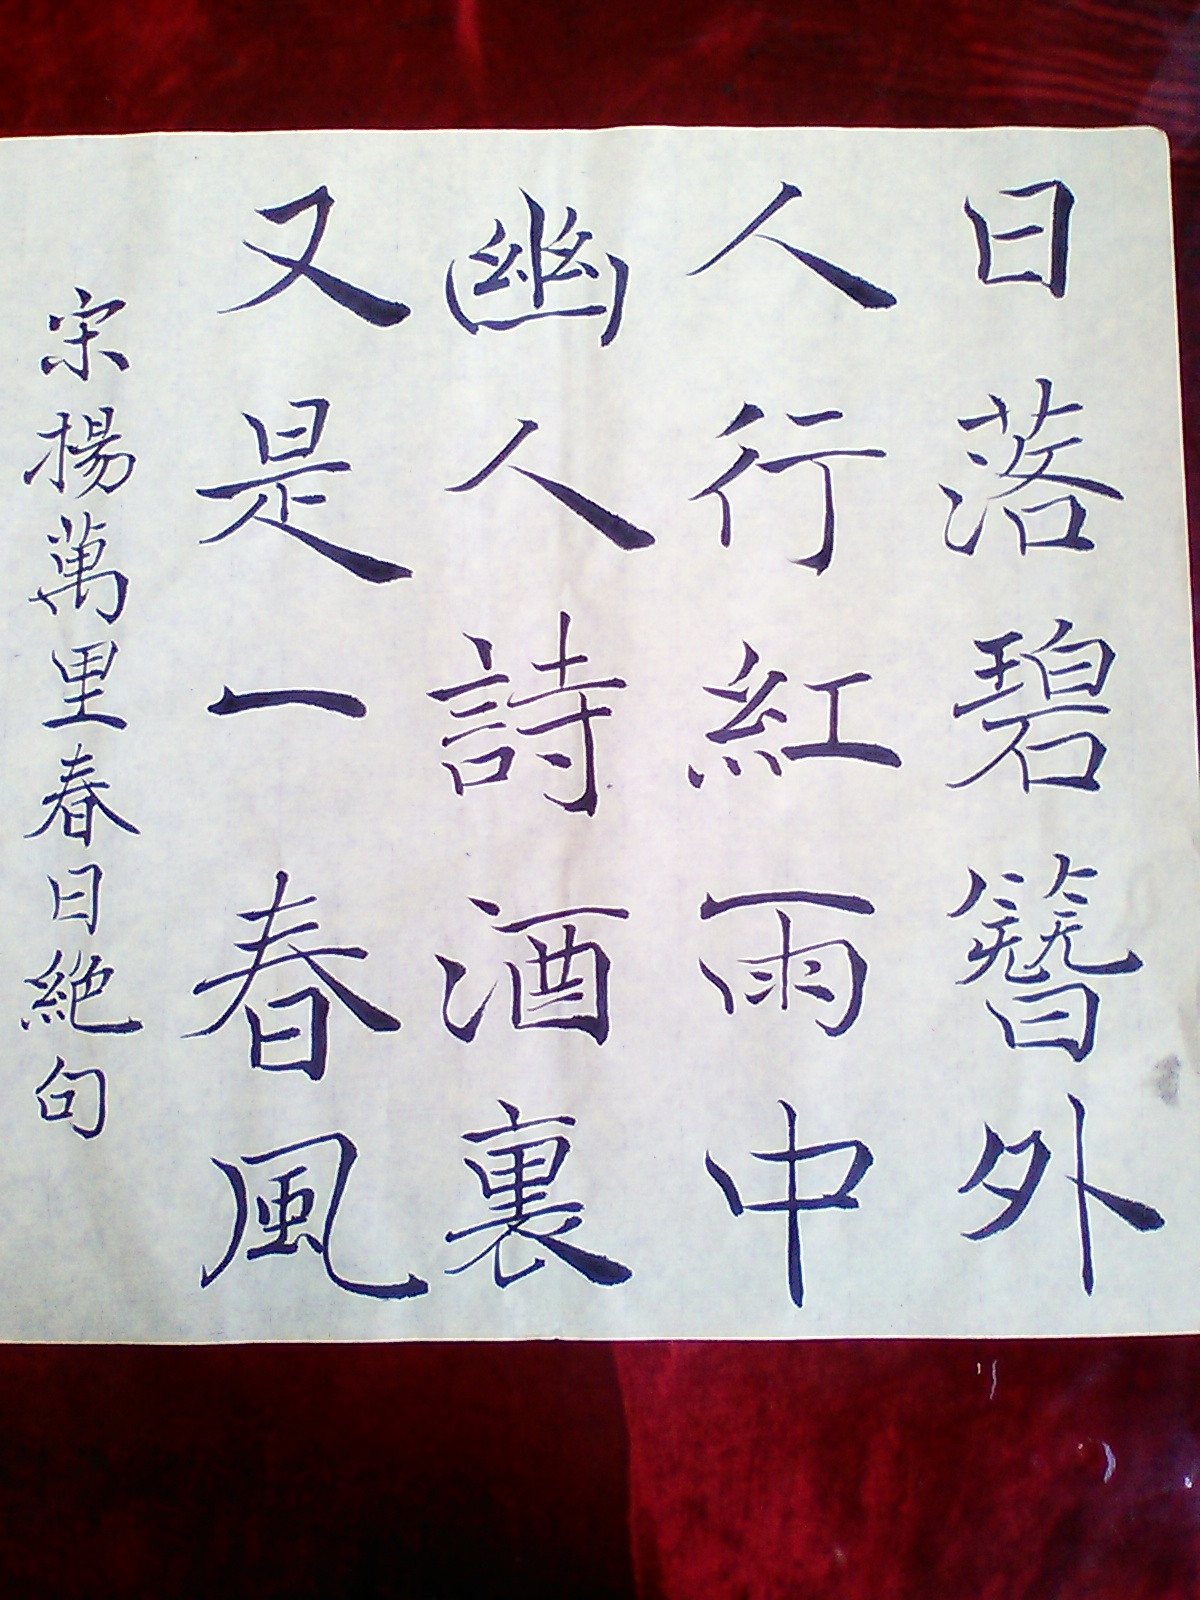 日落碧簪外
人行紅雨中
幽人詩酒裏
又是一春風
宋楊萬里春日絕句